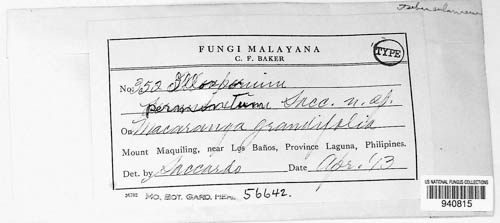 FUNGI MALAYANA
C. F. BAKER
TYPE
No. 352 Illosporium
Sacc. n. sp.
On Macaranga grandifolia
Mount Maquiling, near Los Baños, Province Laguna, Philipines.
Det. by Saccardo Date Apr. '13
26792 MO. BOT. GARD. HERB. 56642.
US NATIONAL FUNGUS COLLECTIONS
940815